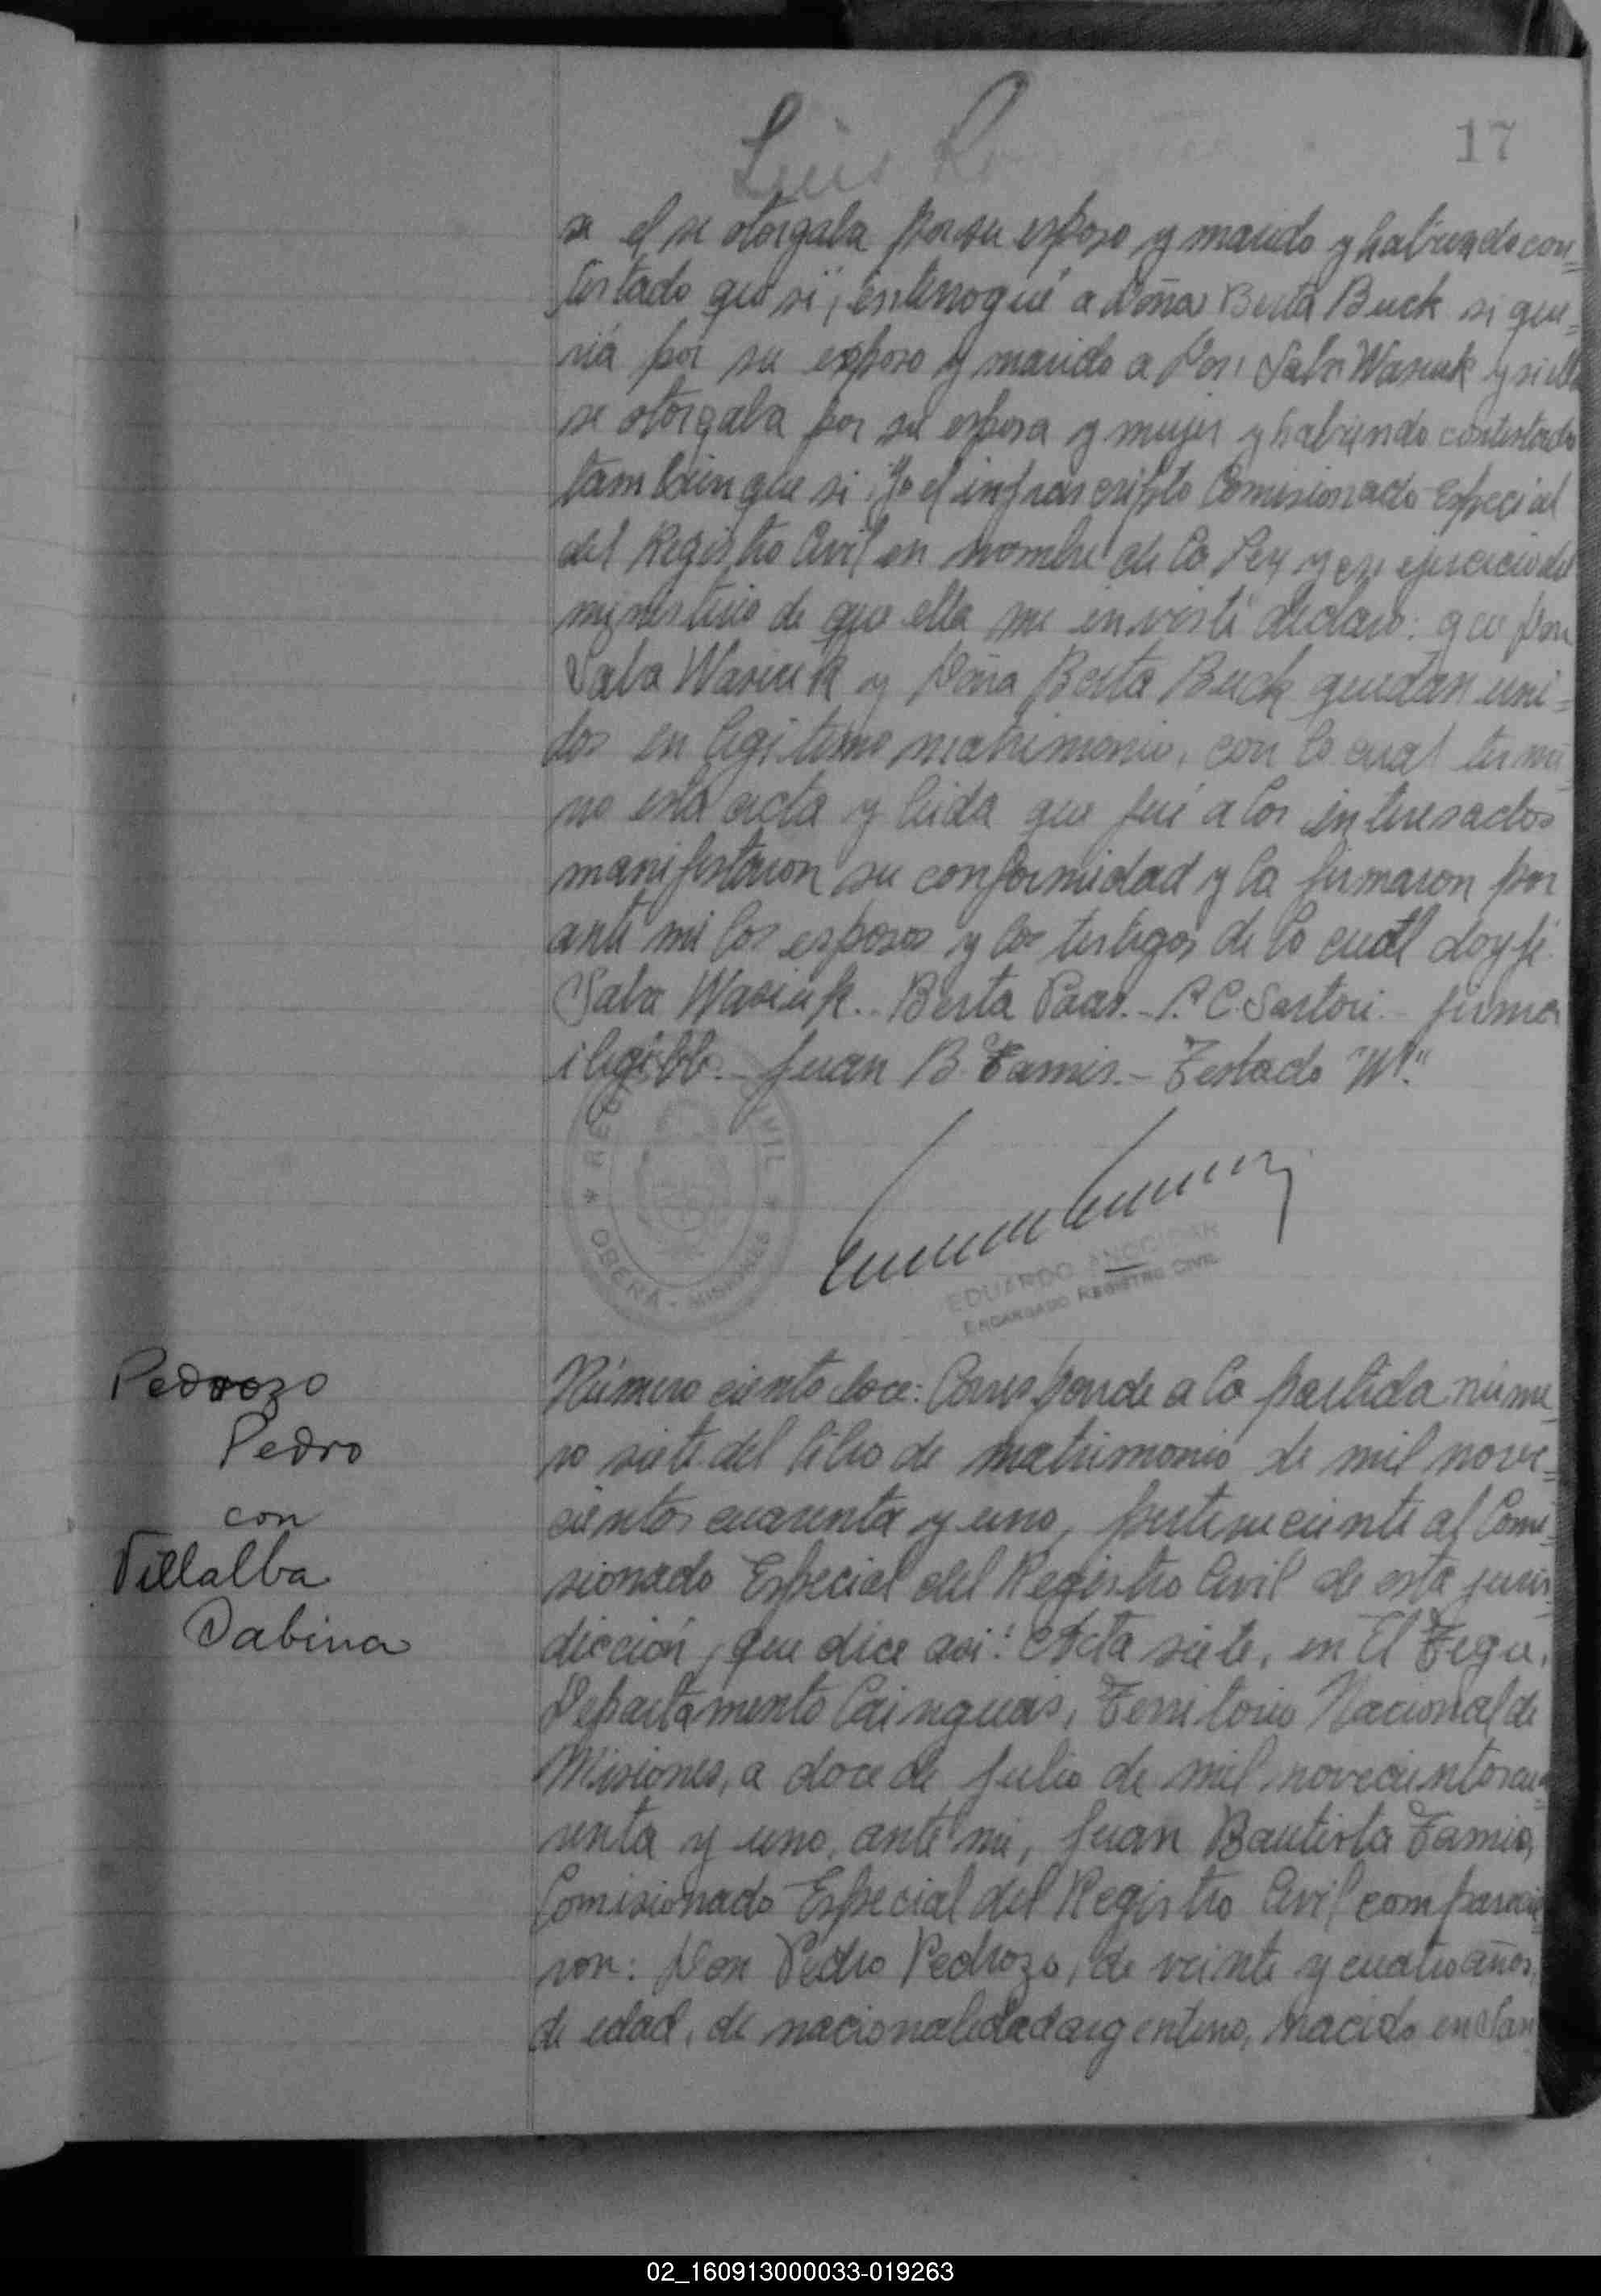 17
Luis
se el se otorgaba por su esposo y marido y habiendo con=
testado que si, interrogué a Doña Berta Buck si que=
riá por su esposo y marido a Don Saba Wasiuk y si ella
se otorgaba por su esposa y mujer y habiendo contestado
tambien que si, Yo el infrascripto Comisionado Especial
del Registro Civil en nombre de la Ley y en ejercicio del
ministerio de que ella me inviste declaro: que Don
Saba Wasiuk y Doña Berta Buck quedan uni=
dos en legitimo matrimonio, con lo cual termi
no esta acta y leida que fué a los interesados
manifestaron su conformidad y la firmaron por
ante mi los esposos y los testigos de lo cual doy fé.
Saba Wasiuk.- Berta - P. C. Sartori.- firma
ilegible.- Juan B. Tamis.- Testado "W".
REGISTRO CIVIL
* OBERA - MISIONES *
EDUARDO
ENCARGADO REGISTRO CIVIL
Pedrozo
Pedro
con
Villalba
Sabina
Número ciento doce: Corresponde a la partida núme=
ro siete del libro de matrimonio de mil nove=
cientos cuarenta y uno, perteneciente al Comi=
sionado Especial del Registro Civil de esta juris=
dicción, que dice asi: Acta siete, en El
Departamento Cainguas, Territorio Nacional de
Misiones, a doce de Julio de mil novecientos cua=
renta y uno, ante mi, Juan Bautista Tamis,
Comisionado Especial del Registro Civil comparecie
ron: Don Pedro Pedrozo, de veinte y cuatro años
de edad, de nacionalidad argentino, nacido en San
02_160913000033-019263